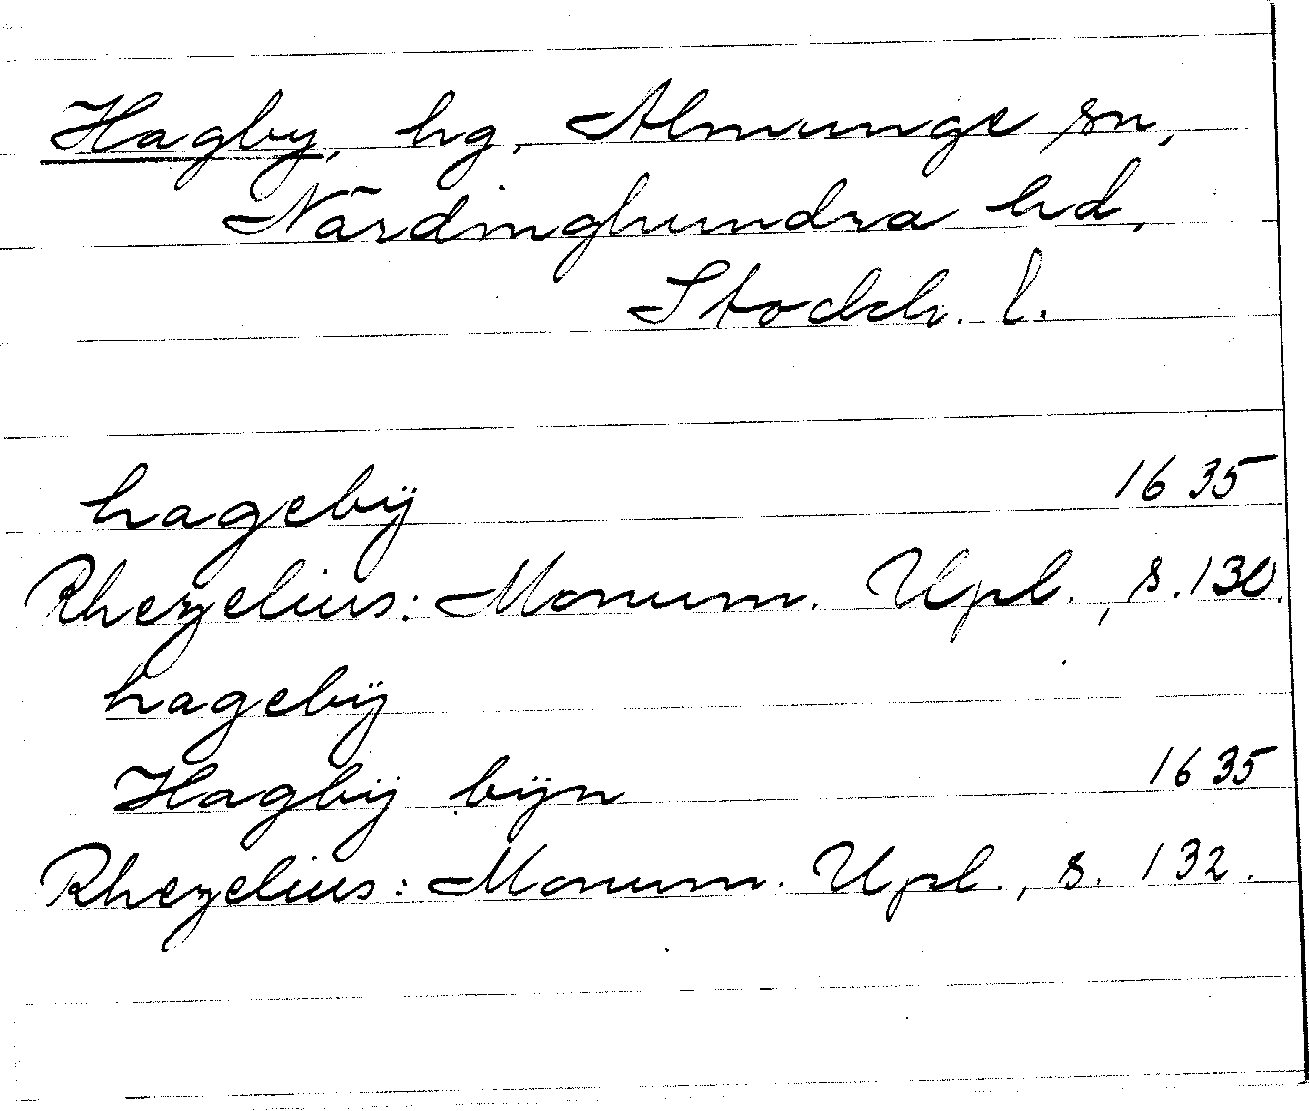 Hagby, hg, Almunge sn,
Närdinghundra hd,
Stockh. l.
hagebÿ 1635
Rhezelius: Monum. Upl., s. 130.
hagebÿ
Hagbÿ bÿn 1635
Rhezelius: Monum. Upl., s. 132.